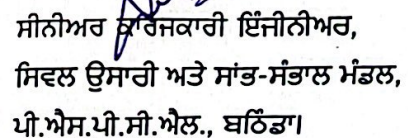 ਸੀਨੀਅਰ ਕਾਰਜਕਾਰੀ ਇੰਜੀਨੀਅਰ,
ਸਿਵਲ ਉਸਾਰੀ ਅਤੇ ਸਾਂਭ-ਸੰਭਾਲ ਮੰਡਲ,
ਪੀ.ਐਸ.ਪੀ.ਸੀ.ਐਲ., ਬਠਿੰਡਾ।